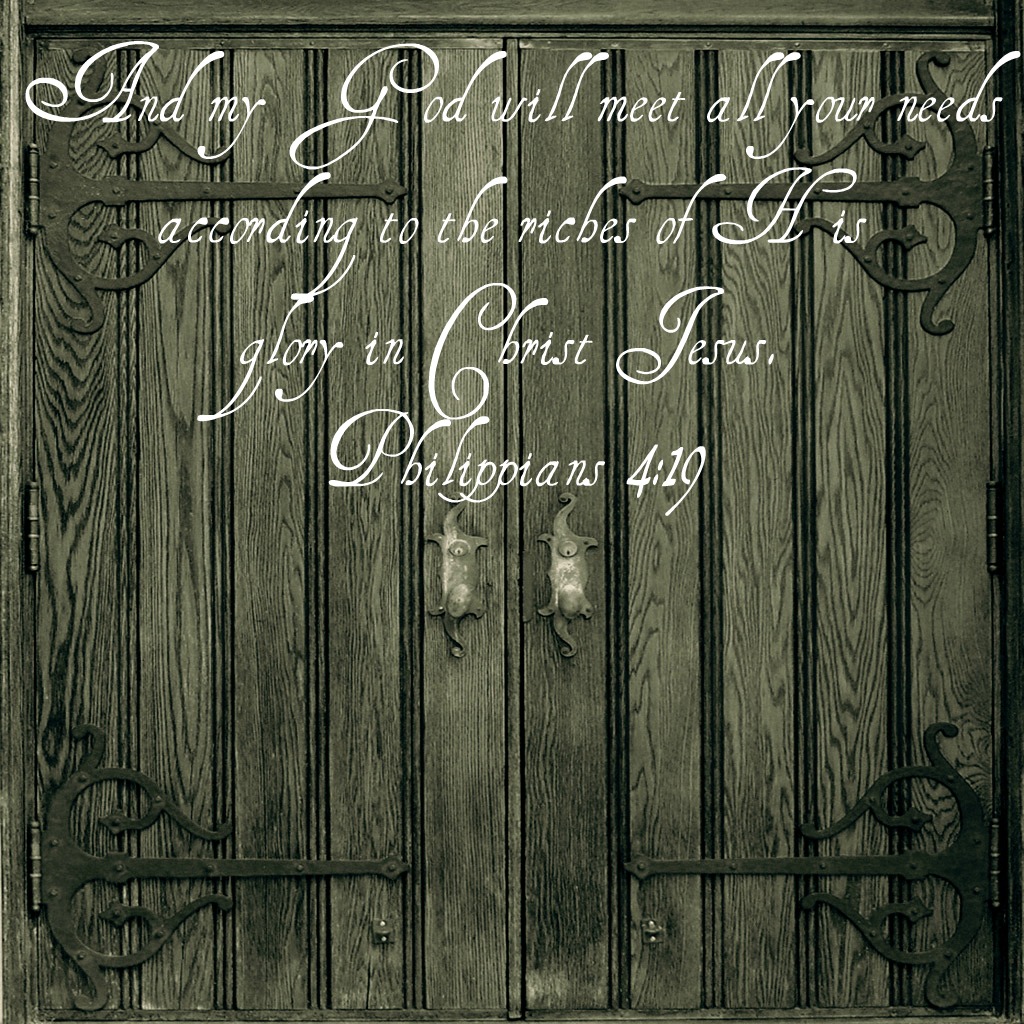 And my God will meet all your needs
according to the riches of His
glory in Christ Jesus.
Philippians 4:19